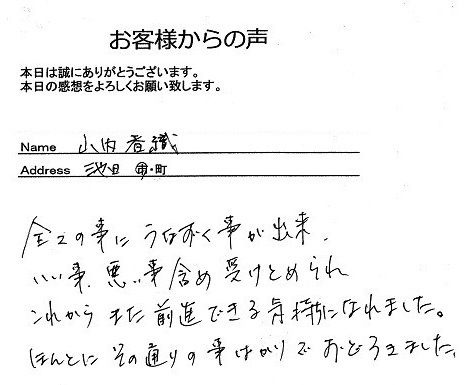 お客様からの声
本日は誠にありがとうございます。
本日の感想をよろしくお願い致します。
Name 小内香織
Address 池田 市・町
全ての事にうなずく事が出来、
いい事、悪い事含め受けとめられ
これからまた前進できる気持になれました。
ほんとにその通りの事ばかりでおどろきました。